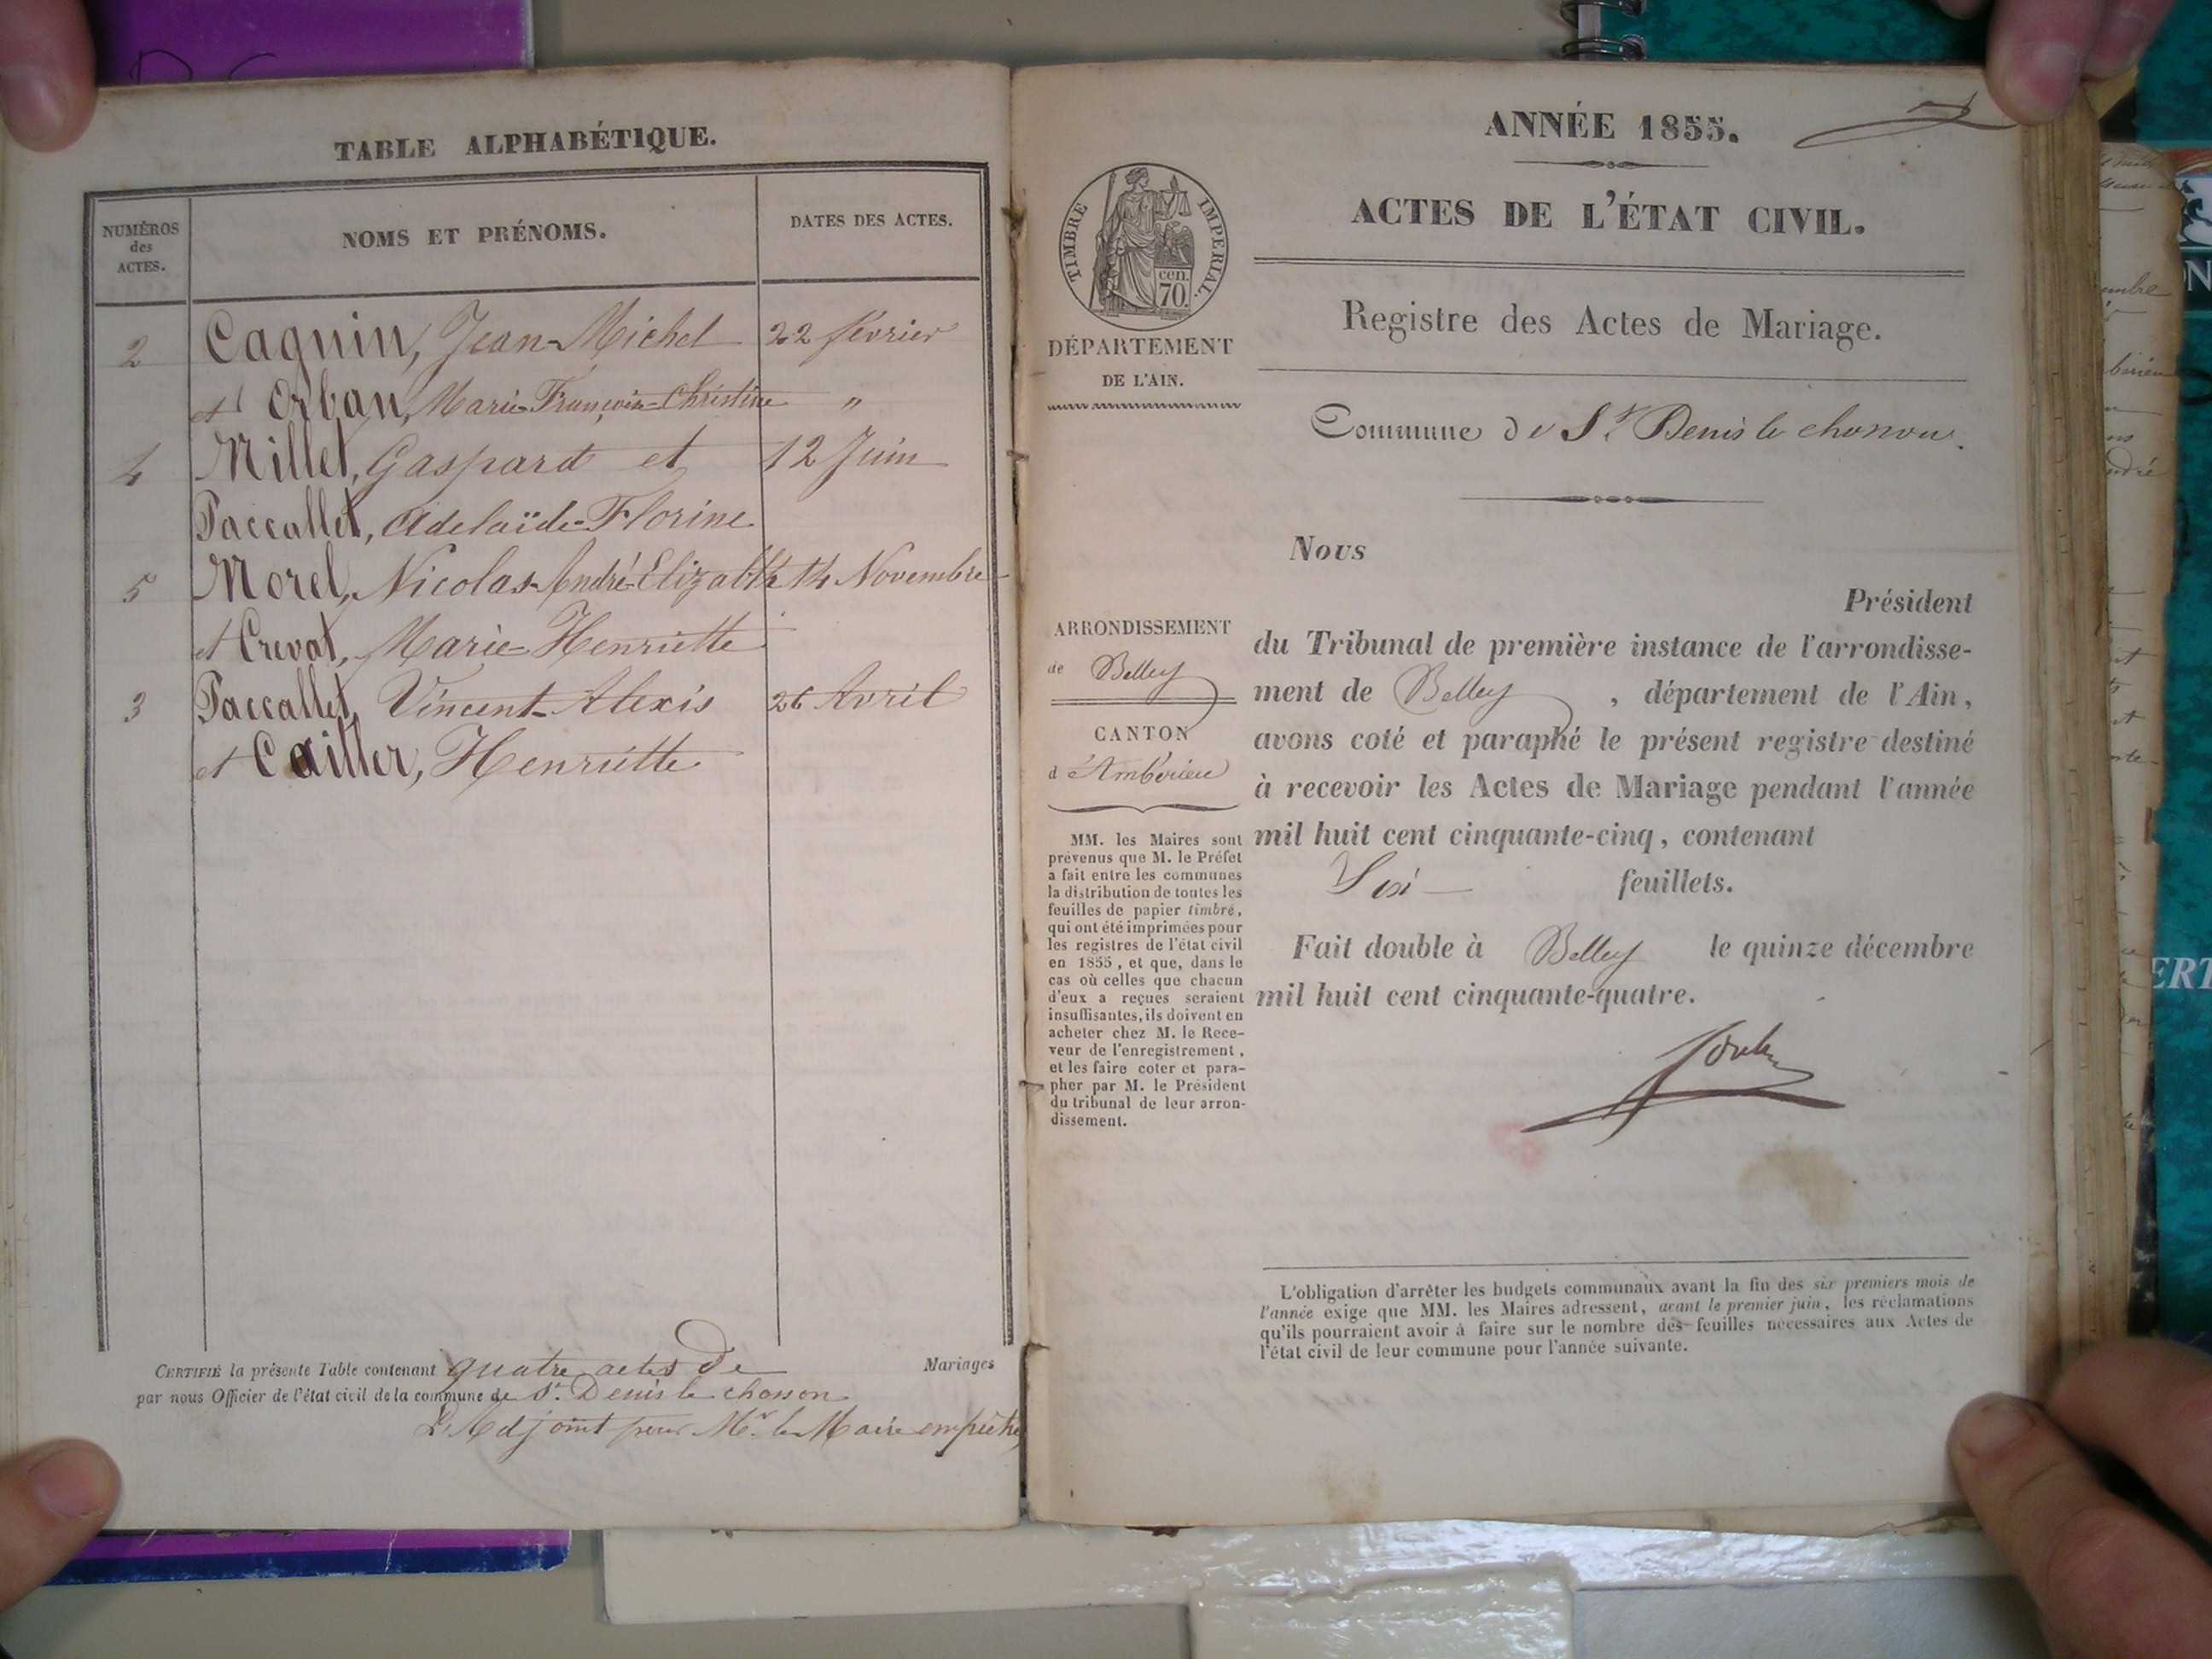 TABLE ALPHABÉTIQUE.
NUMÉROS des ACTES.
NOMS ET PRÉNOMS.
DATES DES ACTES.
2 Cagnin, Jean-Michel 22 février
et Orban, Marie-Françoise-Christine "
4 Millet, Gaspard et 12 Juin
Paccallet, Adelaïde-Florine
5 Morel, Nicolas-André-Elizabth 14 Novembre
et Crevat, Marie-Henriette
3 Paccallet, Vincent-Alexis 26 Avril
et Cailler, Henriette
CERTIFIÉ la présente Table contenant quatre actes de Mariages
par nous Officier de l'état civil de la commune de St. Denis le chosson
L'Adjoint pour Mr. le Maire empêché
ANNÉE 1855.
ACTES DE L'ÉTAT CIVIL.
TIMBRE IMPERIAL.
cen.
70.
Registre des Actes de Mariage.
DÉPARTEMENT
DE L'AIN.
Commune de St. Denis le chosson.
Nous
Président
du Tribunal de première instance de l'arrondisse-
ment de Belley, département de l'Ain,
avons coté et paraphé le présent registre destiné
à recevoir les Actes de Mariage pendant l'année
mil huit cent cinquante-cinq, contenant
Six feuillets.
Fait double à Belley le quinze décembre
mil huit cent cinquante-quatre.
ARRONDISSEMENT
de Belley
CANTON
d'Ambérieu
MM. les Maires sont
prévenus que M. le Préfet
a fait entre les communes
la distribution de toutes les
feuilles de papier timbré,
qui ont été imprimées pour
les registres de l'état civil
en 1855, et que, dans le
cas où celles que chacun
d'eux a reçues seraient
insuffisantes, ils doivent en
acheter chez M. le Rece-
veur de l'enregistrement,
et les faire coter et para-
pher par M. le Président
du tribunal de leur arron-
dissement.
L'obligation d'arrêter les budgets communaux avant la fin des six premiers mois de
l'année exige que MM. les Maires adressent, avant le premier juin, les réclamations
qu'ils pourraient avoir à faire sur le nombre des feuilles nécessaires aux Actes de
l'état civil de leur commune pour l'année suivante.